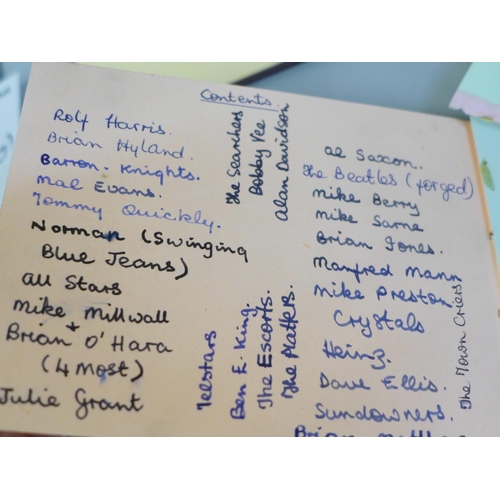 Contents.
Rolf Harris.
Brian Hyland.
Barron-Knights.
Mal Evans.
Tommy Quickly.
Norman (Swinging
Blue Jeans)
All Stars
Mike Millwall
+
Brian O'Hara
(4 Most)
Julie Grant
The Searchers
Bobby Vee
Alan Davidson
Telstars
Ben E. King.
The Escorts.
The Platters.
Al Saxon.
The Beatles (forged)
Mike Berry
Mike Sarne
Brian Jones.
Manfred Mann
Mike Preston
Crystals
Heinz.
Dave Ellis.
Sundowners.
Brian
The Town Criers